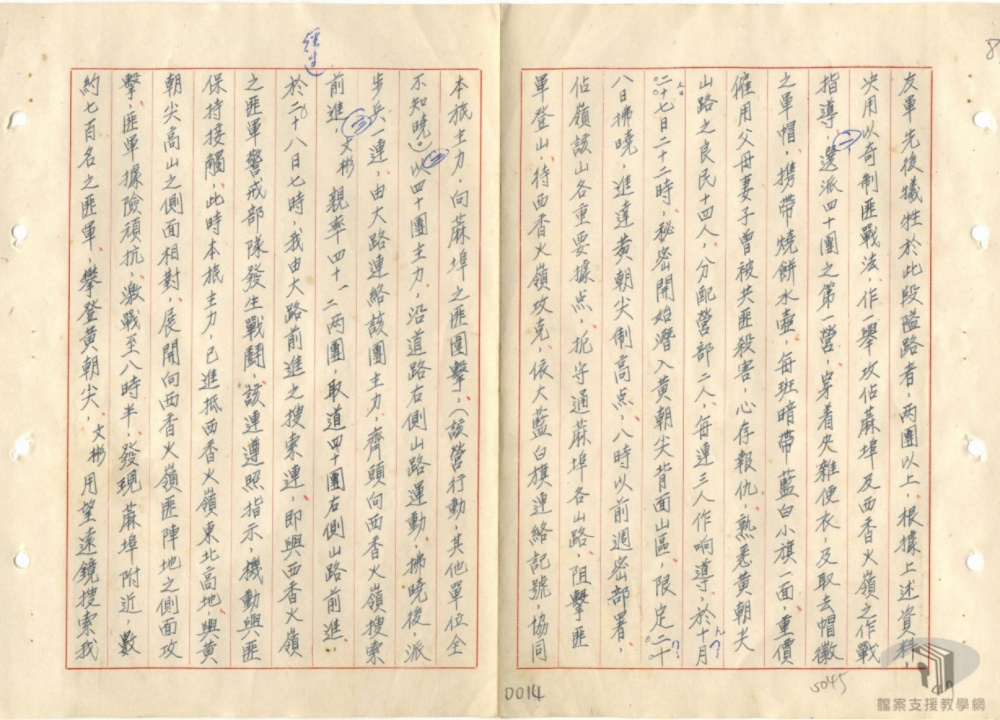 友軍先後犧牲於此段隘路者，兩團以上，根據上述資料，
決用以奇制匪戰法，作一舉攻佔蔴埠及西香火嶺之作戰
指導，㊁選派四十團之第一營，穿着夾雜便衣，及取去帽徽
之軍帽，携帶燒餅水壺，每班暗帶藍白小旗一面，重價
僱用父母妻子曾被共匪殺害，心存報仇，熟悉黃朝尖
山路之良民十四人，分配營部二人，每連三人作响導，於十月
二十七日二十二時，秘密開始潛入黃朝尖背面山區，限定二十
八日拂曉，進達黃朝尖制高点，八時以前週密部署，
佔嶺該山各重要據点，扼守通蔴埠各山路，阻擊匪
軍登山，待西香火嶺攻克，依大藍白旗連絡記號，協同
本旅主力，向蔴埠之匪圍擊，（該營行動，其他單位全
不知曉。）㊂以四十團主力，沿道路右側山路運動，拂曉後，派
步兵一連，由大路連絡該團主力，齊頭向西香火嶺搜索
前進，㊂文彬親率四十一二兩團，取道四十團右側山路前進，
於二十八日七時，我由大路前進之搜索連，即與西香火嶺
之匪軍警戒部隊發生戰鬪，該連遵照指示，機動與匪
保持接觸，此時本旅主力，已進抵西香火嶺東北高地，與黃
朝尖高山之側面相對，展開向西香火嶺匪陣地之側面攻
擊，匪軍據險頑抗，激戰至八時半，發現蔴埠附近，數
約七百名之匪軍，攀登黃朝尖，文彬用望遠鏡搜索我
九
？
？
8
0014
5045
檔案支援教學網